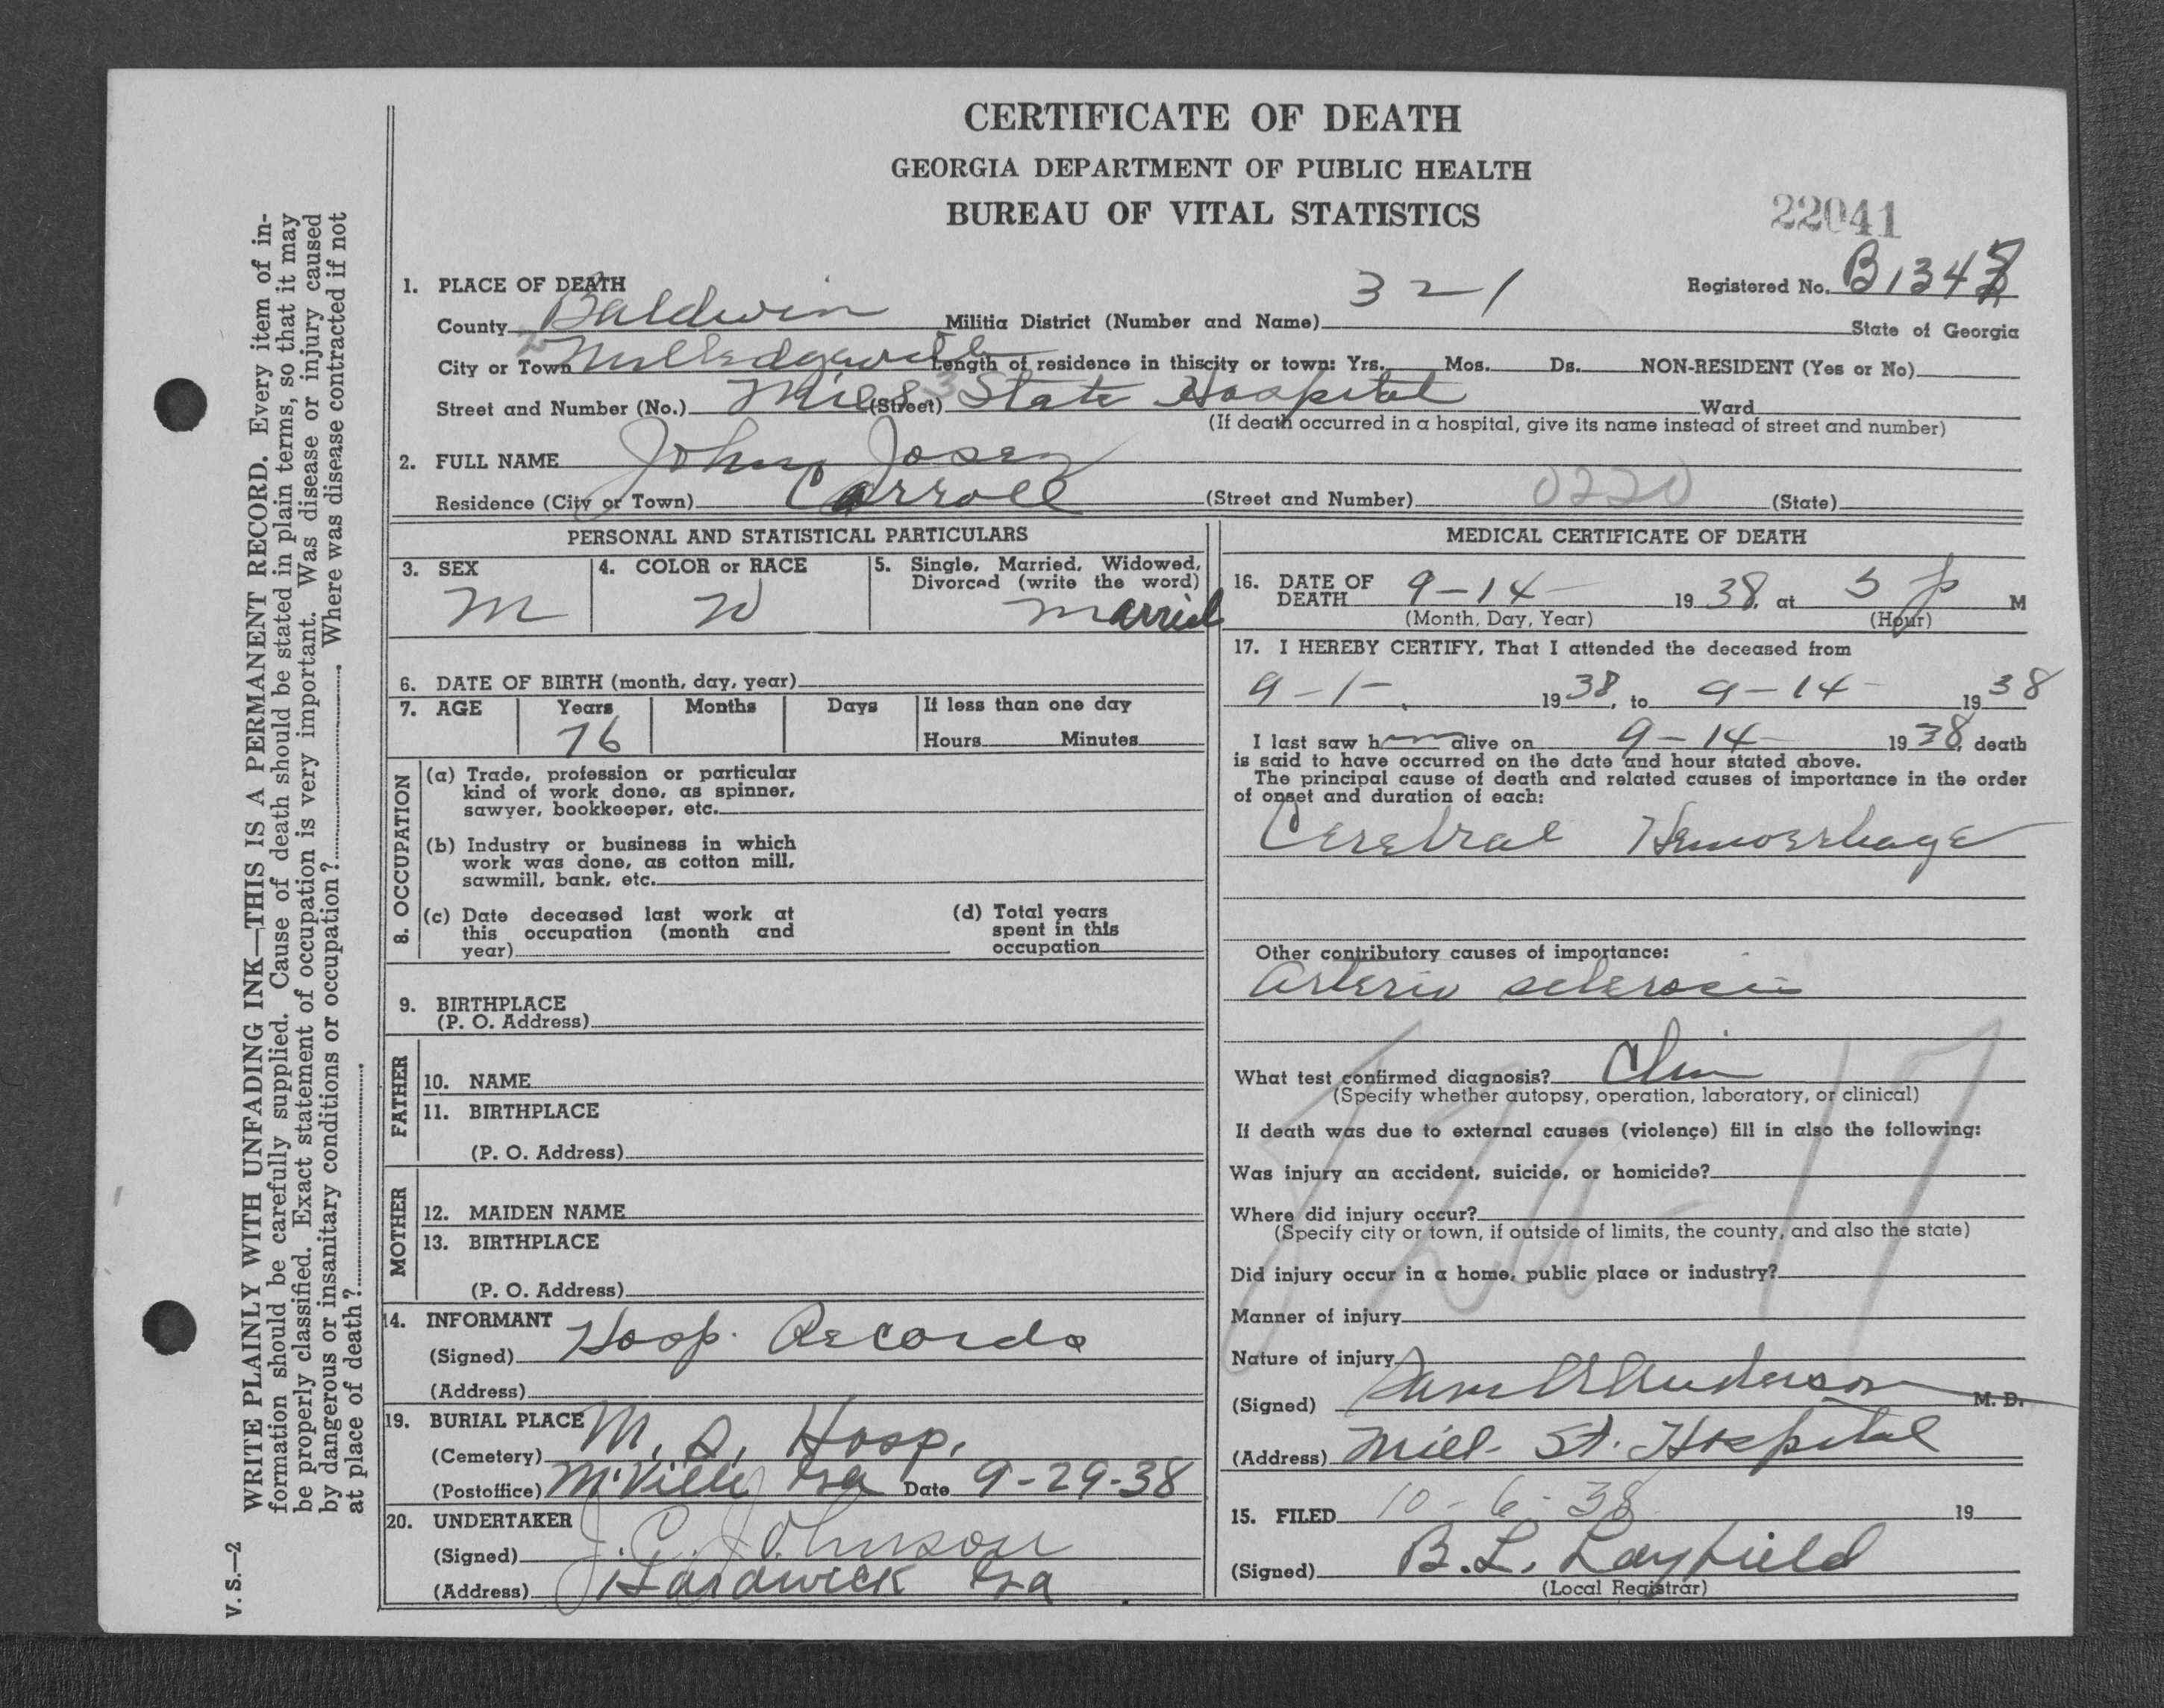 CERTIFICATE OF DEATH
GEORGIA DEPARTMENT OF PUBLIC HEALTH
BUREAU OF VITAL STATISTICS
22041
1. PLACE OF DEATH
321
Registered No. B134
County Baldwin Militia District (Number and Name) State of Georgia
City or Town Milledgeville Length of residence in thiscity or town: Yrs. Mos. Ds. NON-RESIDENT (Yes or No)
Street and Number (No.) Mill (Street) State Hospital Ward
(If death occurred in a hospital, give its name instead of street and number)
2. FULL NAME John Josey
Residence (City or Town) Carroll (Street and Number) 0220 (State)
PERSONAL AND STATISTICAL PARTICULARS
3. SEX M
4. COLOR or RACE W
5. Single, Married, Widowed,
Divorced (write the word)
Married
6. DATE OF BIRTH (month, day, year)
7. AGE Years Months Days If less than one day
76 Hours Minutes
8. OCCUPATION
(a) Trade, profession or particular
kind of work done, as spinner,
sawyer, bookkeeper, etc.
(b) Industry or business in which
work was done, as cotton mill,
sawmill, bank, etc.
(c) Date deceased last work at
this occupation (month and
year)
(d) Total years
spent in this
occupation
9. BIRTHPLACE
(P. O. Address)
FATHER
10. NAME
11. BIRTHPLACE
(P. O. Address)
MOTHER
12. MAIDEN NAME
13. BIRTHPLACE
(P. O. Address)
14. INFORMANT
(Signed) Hosp. Records
(Address)
19. BURIAL PLACE
(Cemetery) M. S. Hosp.
(Postoffice) M'Ville Ga Date 9-29-38
20. UNDERTAKER
(Signed) J. C. Johnson
(Address) Hardwick Ga
MEDICAL CERTIFICATE OF DEATH
16. DATE OF
DEATH 9-14- 19 38, at 5 p M
(Month, Day, Year) (Hour)
17. I HEREBY CERTIFY, That I attended the deceased from
9-1- 19 38, to 9-14- 19 38
I last saw him alive on 9-14- 19 38, death
is said to have occurred on the date and hour stated above.
The principal cause of death and related causes of importance in the order
of onset and duration of each:
Cerebral Hemorrhage
Other contributory causes of importance:
Arterio sclerosis
What test confirmed diagnosis? Clin
(Specify whether autopsy, operation, laboratory, or clinical)
If death was due to external causes (violence) fill in also the following:
Was injury an accident, suicide, or homicide?
Where did injury occur?
(Specify city or town, if outside of limits, the county, and also the state)
Did injury occur in a home, public place or industry?
Manner of injury
Nature of injury
(Signed) Anderson M. D.
(Address) Mill. St. Hospital
15. FILED 10-6-38 19
(Signed) B. L. Layfield
(Local Registrar)
WRITE PLAINLY WITH UNFADING INK—THIS IS A PERMANENT RECORD. Every item of in-
formation should be carefully supplied. Cause of death should be stated in plain terms, so that it may
be properly classified. Exact statement of occupation is very important. Was disease or injury caused
by dangerous or insanitary conditions or occupation? Where was disease contracted if not
at place of death?
V. S.—2